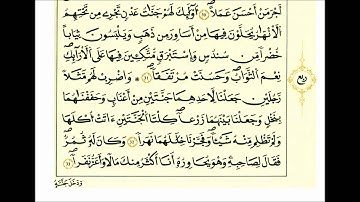 أَجْرَ مَنْ أَحْسَنَ عَمَلًا ٣٠ أُولَٰئِكَ لَهُمْ جَنَّٰتُ عَدْنٍ تَجْرِے مِن تَحْتِهِمُ
اُ۬لْأَنْهَٰرُ يُحَلَّوْنَ فِيهَا مِنْ أَسَاوِرَ مِن ذَهَبٍ وَيَلْبَسُونَ ثِيَاباً
خُضْراً مِّن سُندُسٍ وَإِسْتَبْرَقٍ مُّتَّكِـِٕينَ فِيهَا عَلَى اَ۬لْأَرَآئِكِ
نِعْمَ اَ۬لثَّوَابُ وَحَسُنَتْ مُرْتَفَقاً ٣١ وَاضْرِبْ لَهُم مَّثَلًا
رَّجُلَيْنِ جَعَلْنَا لِأَحَدِهِمَا جَنَّتَيْنِ مِنْ أَعْنَٰبٍ وَحَفَفْنَٰهُمَا
بِنَخْلٍ وَجَعَلْنَا بَيْنَهُمَا زَرْعاً كِلْتَا اَ۬لْجَنَّتَيْنِ ءَاتَتُ اُكْلَهَا
وَلَمْ تَظْلِم مِّنْهُ شَيْـٔاً وَفَجَّرْنَا خِلَٰلَهُمَا نَهَراً وَكَانَ لَهُۥ ثُمُرٌ
فَقَالَ لِصَٰحِبِهِۦ وَهُوَ يُحَاوِرُهُۥٓ أَنَا أَكْثَرُ مِنكَ مَالًا وَأَعَزُّ نَفَراً
وَدَخَلَ جَنَّتَهُۥ
ربع